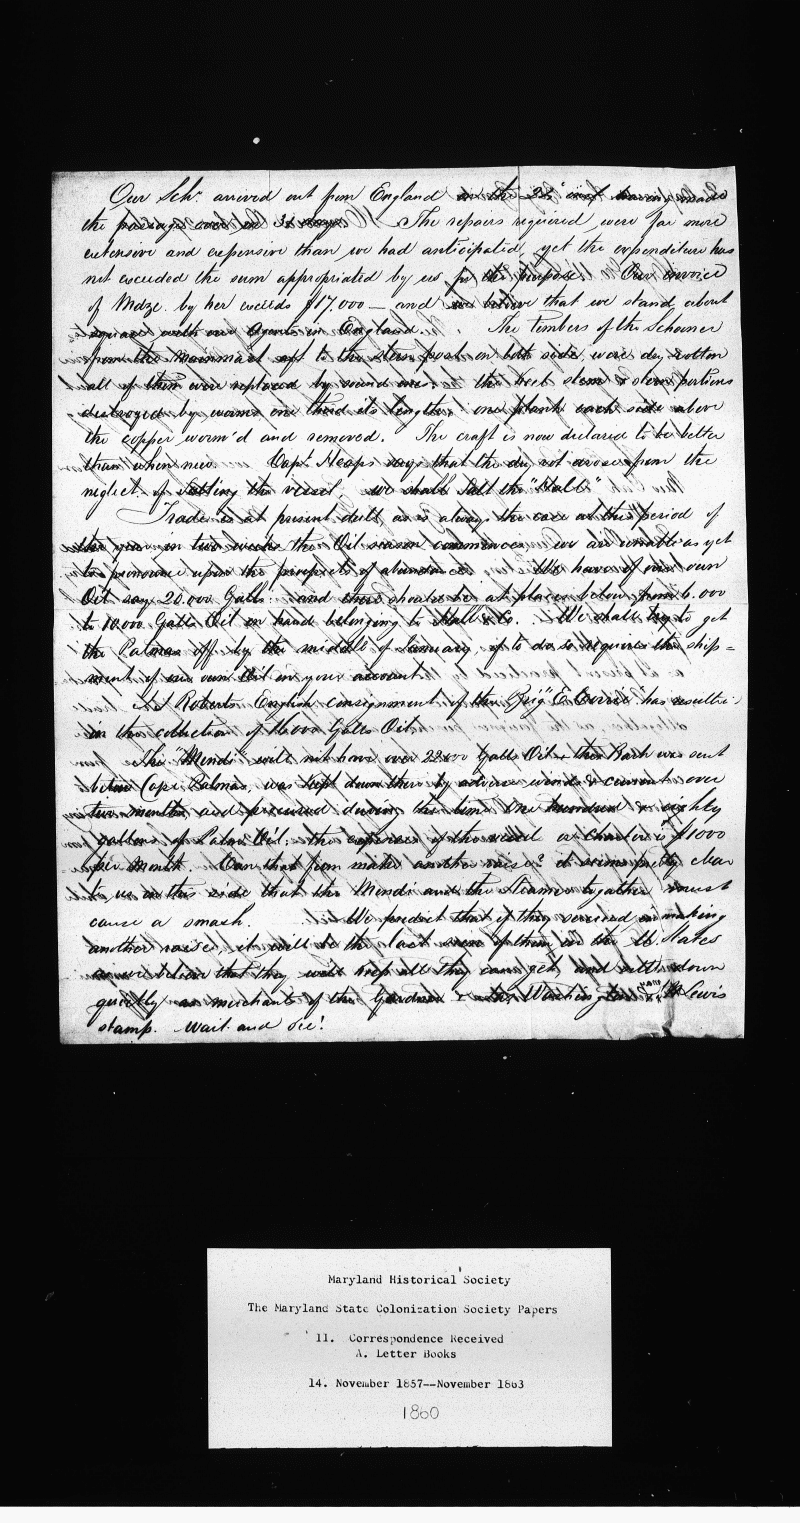 Our Schr. arrived out from England on the 22d inst having made
the passage over in 32 days. The repairs required were far more
extensive and expensive than we had anticipated, yet the expenditure has
not exceeded the sum appropriated by us for the purpose. Our invoice
of Mdze. by her exceeds $17,000 — and we believe that we stand about
square with our Agents in England. The timbers of the Schooner
from the mainmast aft to the stern post on both side, were dry rotten
all of them were replaced by sound ones. the keel stem & stern portions
destroyed by worms one third its length: one plank each side above
the copper worm'd and removed. The craft is now declared to be better
than when new. Capt. Heaps says that the dry rot arose from the
neglect of salting the vessel. we shall salt the "Hall"
Trade is at present dull as is always the case at this period of
the year. in two weeks the Oil season commences. we are unable as yet
to pronounce upon the prospects of abundance. We have of our own
Oil say 20.000 Galls: and there should be at places below from 6.000
to 10.000 Galls Oil on hand belonging to Hall & Co. We shall try to get
the Palmas off by the middle of January, if to do so requires the ship=
ment of our own Oil on your account.
Roberts English consignment of the Brig "E. Corrie" has resulted
in the collection of Galls Oil
The "Mendi" will not have over 22000 Galls Oil. this Bark was sent
below Cape Palmas, was kept down there by adverse winds & current over
two months and procured during the time One hundred & eighty
gallons of Palm Oil; the expenses of the vessel or charter is $1000
per Month. Can that firm make another raise? it seems pretty clear
to us on this side that the Mendi and the Steamer together must
cause a smash. We predict that if they succeed in making
another raise, it will be the last seen of them in the U. States
as we believe that they will keep all they can get, and settle down
quietly as merchant of the Gardner & Washington & Lewis
stamp. Wait and see!
Maryland Historical Society
The Maryland State Colonization Society Papers
11. Correspondence Received
A. Letter Books
14. November 1857--November 1863
1860